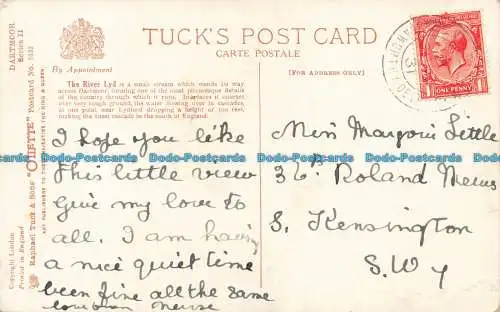 TUCK'S POST CARD
CARTE POSTALE
By Appointment
[FOR ADDRESS ONLY]
DARTMOOR
Series II
Raphael Tuck & Sons' "OILETTE" Postcard No. 1622
ART PUBLISHERS TO THEIR MAJESTIES THE KING & QUEEN
Copyright London
Printed in England
The River Lyd is a small stream which wends its way
across Dartmoor, forming one of the most picturesque details
of the country through which it runs. In places it courses
over very rough ground, the water flowing over in cascades,
at one point near Lydford dropping a height of 100 feet,
making the finest cascade in the south of England.
I hope you like
this little view
Give my love to
all. I am having
a nice quiet time
been fine all the same
Miss Margorie Little
36 Roland Mews
S. Kensington
S.W 7
ONE PENNY
Dodo-Postcards Dodo-Postcards Dodo-Postcards Dodo-Postcards